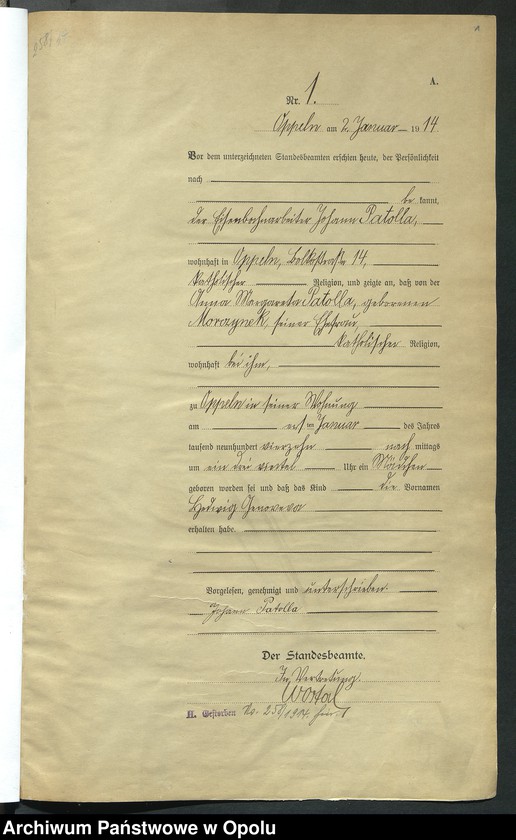 A.
Nr. 1.
Oppeln am 2. Januar 1914
Vor dem unterzeichneten Standesbeamten erschien heute, der Persönlichkeit
nach
be kannt,
der Eisenbahnarbeiter Johann Patolla,
wohnhaft in Oppeln, Boltostraße 14,
katholischer Religion, und zeigte an, daß von der
Anna Margareta Patolla, geborenen
Morczynek, seiner Ehefrau,
katholischer Religion,
wohnhaft bei ihm,
zu Oppeln in seiner Wohnung
am ersten Januar des Jahres
tausend neunhundert vierzehn nach mittags
um ein drei viertel Uhr ein Mädchen
geboren worden sei und daß das Kind die Vornamen
Hedwig Genoveva
erhalten habe.
Vorgelesen, genehmigt und unterschrieben.
Johann Patolla
Der Standesbeamte.
In Vertretung.
Wostal
II. Gestorben No. 250/1914 hier.
Archiwum Państwowe w Opolu